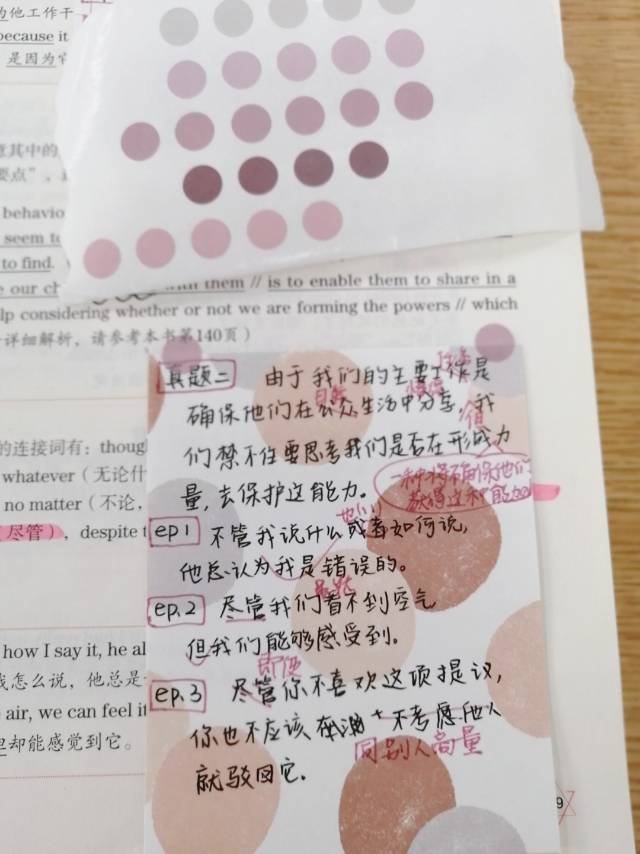 为他工作干
because it
是因为它
意其中的
要点”，
behavio
seem to
to find.
e our ch with them // is to enable them to share in a
lp considering whether or not we are forming the powers // which
详细解析，请参考本书第140页）
真题二 由于我们的主要工作是
确保他们在公众生活中分享，我
们禁不住要思考我们是否在形成力
量，去保护这能力。
一种将不确保他们
获得这种能力的
的连接词有：though
whatever（无论什
no matter（不论，
尽管），despite t
ep1 不管我说什么或者如何说，
他总认为我是错误的。
ep.2 尽管我们看不到空气
但我们能够感受到。
how I say it, he al
我怎么说，他总是
e air, we can feel it
但却能感觉到它。
即使
ep.3 尽管你不喜欢这项提议，
你也不应该 不考虑他人
同别人商量
就驳回它.
9